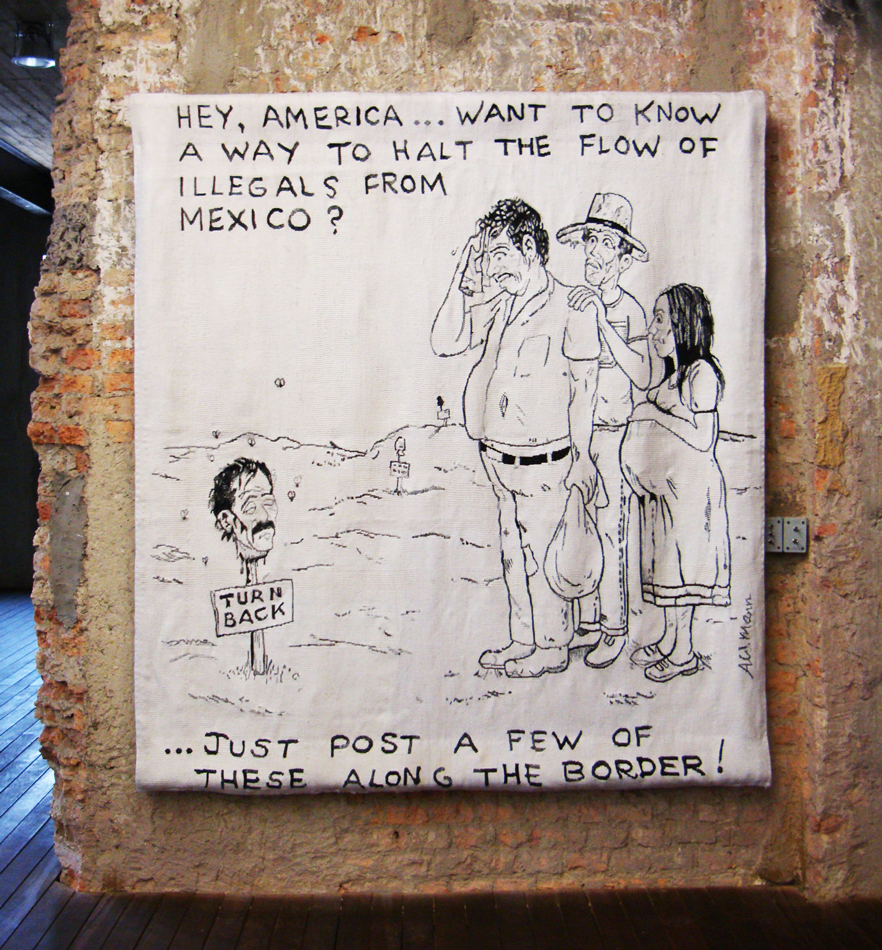 HEY, AMERICA... WANT TO KNOW
A WAY TO HALT THE FLOW OF
ILLEGALS FROM
MEXICO?
TURN
BACK
...JUST POST A FEW OF
THESE ALONG THE BORDER!